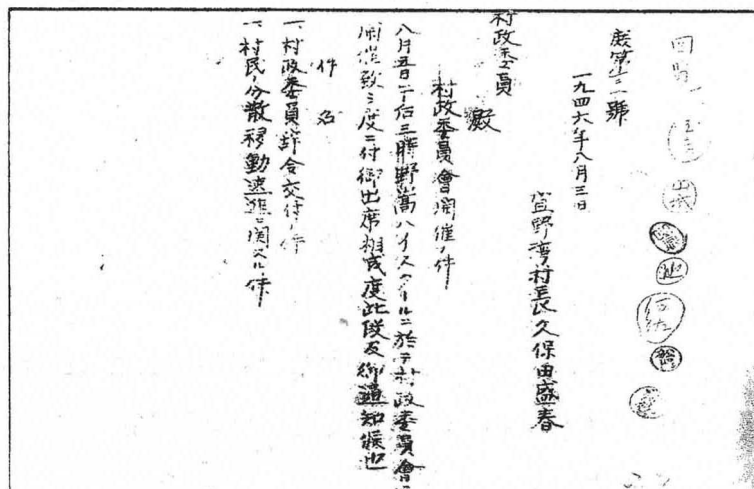 回覧
庶第三一號
一九四六年八月三日
宜野湾村長久保田盛春
村政委員
殿
村政委員會開催ノ件
八月五日午后三時野嵩ハイスクールニ於テ村政委員會
開催致シ度ニ付御出席相成度此段及御通知候也
件名
一、村政委員辞令交付ノ件
一、村民ノ分散移動速進ニ関スル件